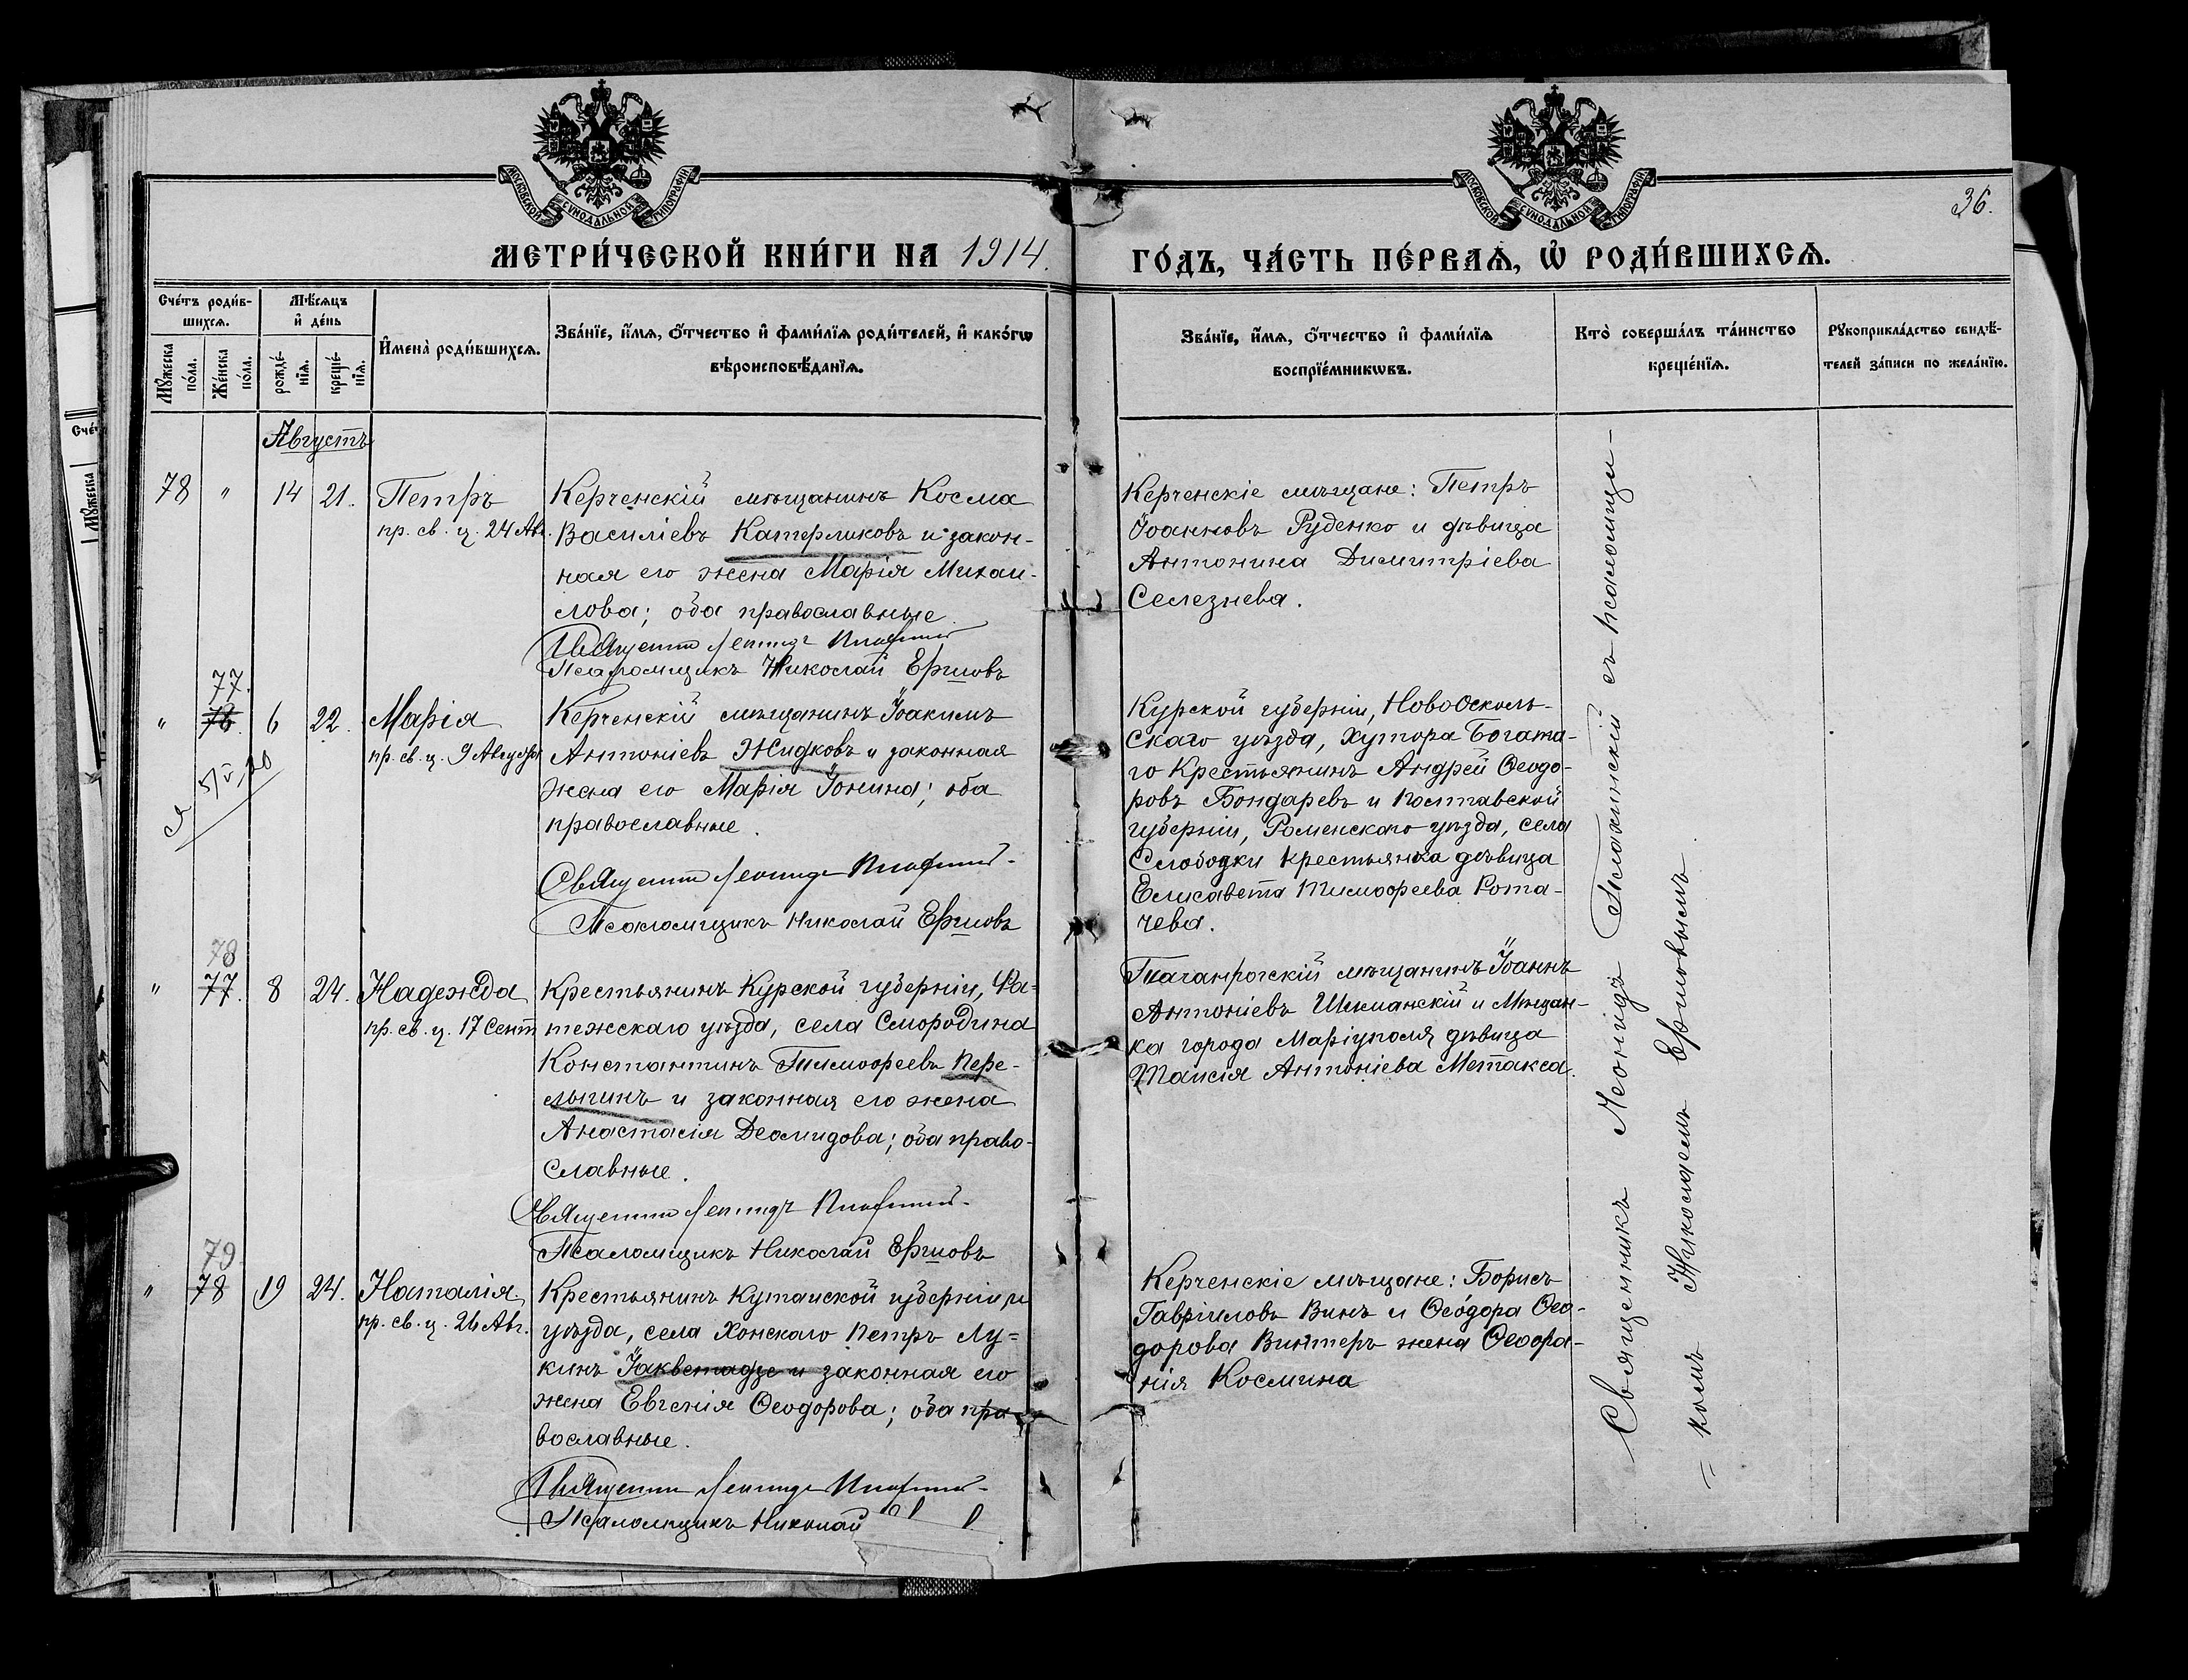 МОСКОВСКОЙ СУНОДАЛЬНОЙ ТИПОГРАФІИ
МОСКОВСКОЙ СУНОДАЛЬНОЙ ТИПОГРАФІИ
36.
МЕТРИ́ЧЕСКОЙ КНИ́ГИ НА 1914.
ГО́ДЪ, ЧА́СТЬ ПЕ́РВАѦ, Ѡ҆ РОДИ́ВШИХСѦ.
Сче́тъ роди́в-
шихсѧ.
Мꙋ́жеска по́ла.
Же́нска по́ла.
Мѣ́сѧцъ
и҆ де́нь
рожде́-
нїѧ.
креще́-
нїѧ.
И҆мена̀ роди́вшихсѧ.
Зва́нїе, и҆́мѧ, ѻ҆́тчество и҆ фами́лїѧ роди́телей, и҆ како́гѡ
вѣроисповѣ́данїѧ.
Зва́нїе, и҆́мѧ, ѻ҆́тчество и҆ фами́лїѧ
воспрїе́мникѡвъ.
Кто̀ соверша́лъ та́инство
креще́нїѧ.
Рꙋкоприкла́дство свидѣ́-
телей за́писи по жела́нїю.
Августъ
78 " 14 21. Петръ
пр. св. ц. 24 Авг.
Керченскій мѣщанинъ Косма
Василіевъ Катерликовъ и закон-
ная его жена Марія Михаи-
лова; оба православные.
Священникъ Леонидъ
Псаломщикъ Николай Ершовъ
Керченскіе мѣщане: Петръ
Іоанновъ Руденко и дѣвица
Антонина Димитріева
Селезнева.
77.
" 76. 6 22. Марія
пр. св. ц. 9 Августа
5/V, 20
Керченскій мѣщанинъ Іоакимъ
Антоніевъ Жидковъ и законная
жена его Марія Іонина; оба
православные.
Священникъ Леонидъ
Псаломщикъ Николай Ершовъ
Курской губерніи, Новоосколь-
скаго уѣзда, хутора Богата-
го Крестьянинъ Андрей Ѳеодо-
ровъ Бондаревъ и Полтавской
губерніи, Роменскаго уѣзда, села
Слободки крестьянка дѣвица
Елисавета Тимоѳеева Рома-
чева.
78
" 77. 8 24. Надежда
пр. св. ц. 17 Сент
Крестьянинъ Курской губерніи, Фа-
тежскаго уѣзда, села Смородина
Константинъ Тимоѳеевъ Пере-
лыгинъ и законная его жена
Анастасія Деомидова; оба право-
славные.
Священникъ Леонидъ
Псаломщикъ Николай Ершовъ
Таганрогскій мѣщанинъ Іоаннъ
Антоніевъ Шиманскій и Мѣщан-
ка города Маріуполя дѣвица
Таисія Антоніева Метакса.
79.
" 78 19 24. Наталія
пр. св. ц. 26 Авг.
Крестьянинъ Кутаиской губерніи, и
уѣзда, села Хонскаго Петръ Лу-
кинъ Іакветадзе и законная его
жена Евгенія Ѳеодорова; оба пра-
вославные.
Священникъ Леонидъ
Псаломщикъ Николай
Керченскіе мѣщане: Борисъ
Гавріиловъ Винъ и Ѳеодора Ѳео-
дорова Винтеръ жена Ѳеофа-
нія Космина
Священникъ Леонидъ съ псаломщи-
= комъ Николаемъ Ершовымъ.
Сче́т
Мꙋ́жеска